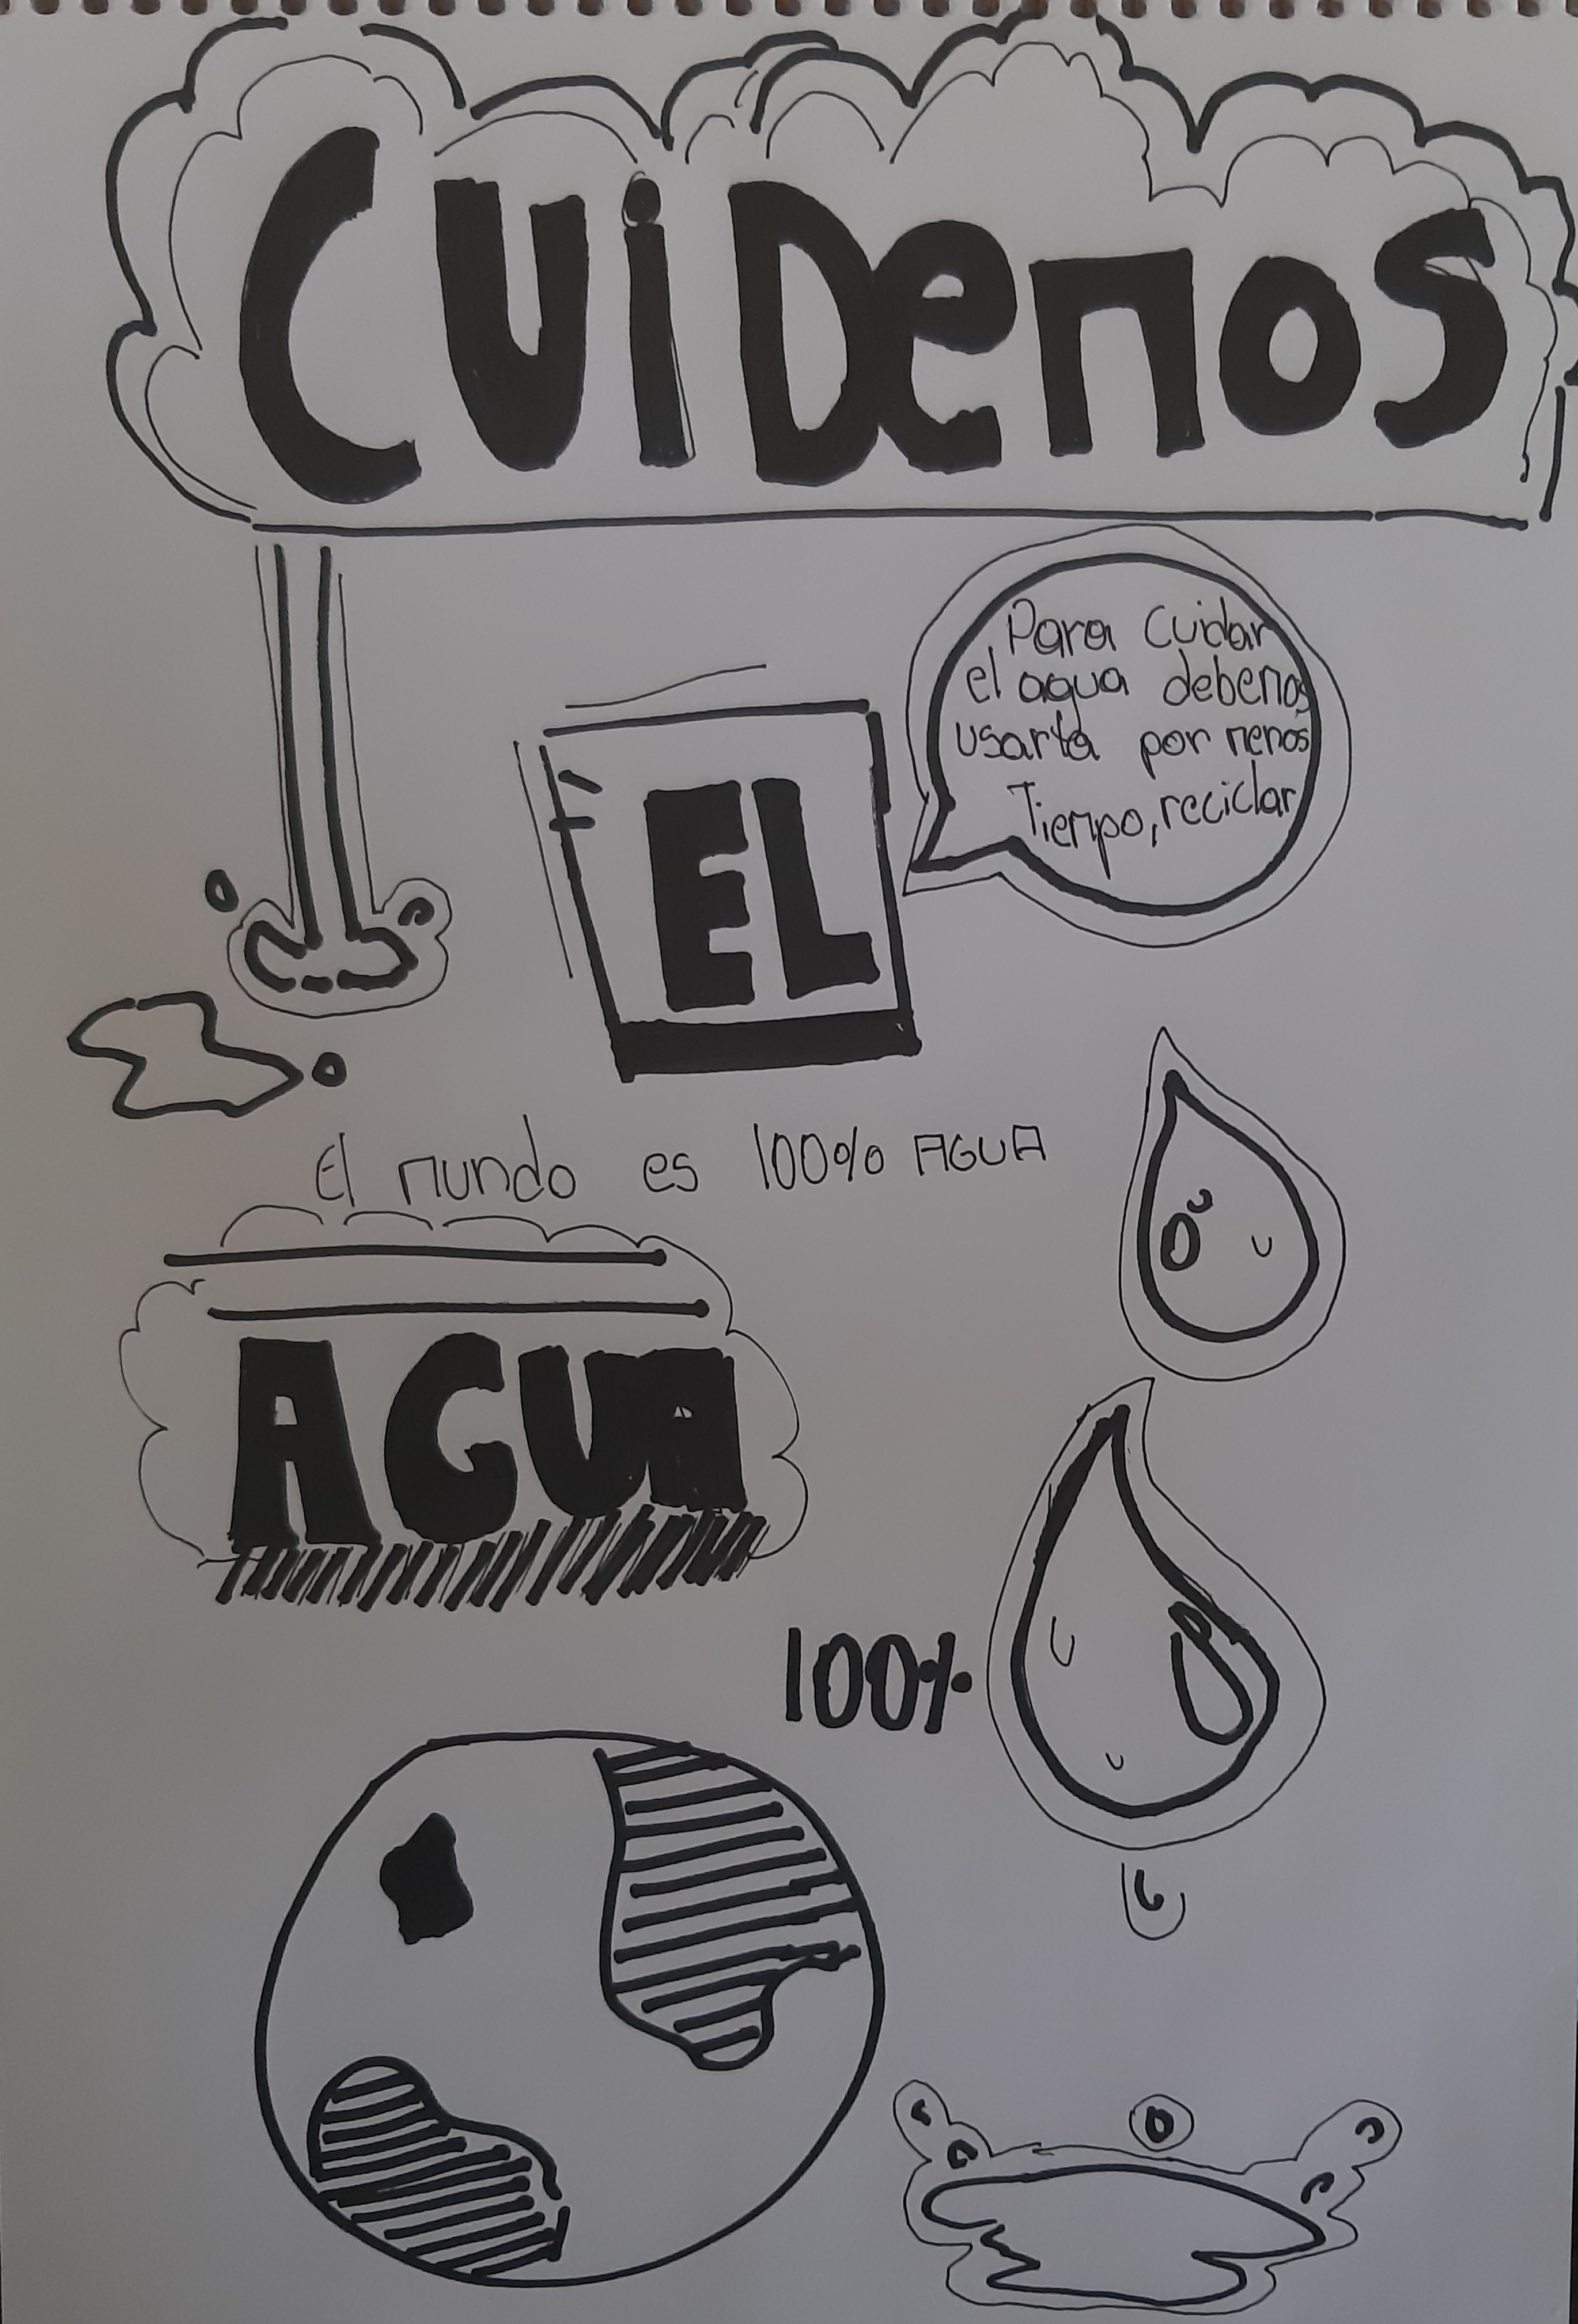 CUiDemos
Para cuidar
el agua debemos
usarla por menos
Tiempo, reciclar
EL
El mundo es 100% AGUA
AGUA
100%